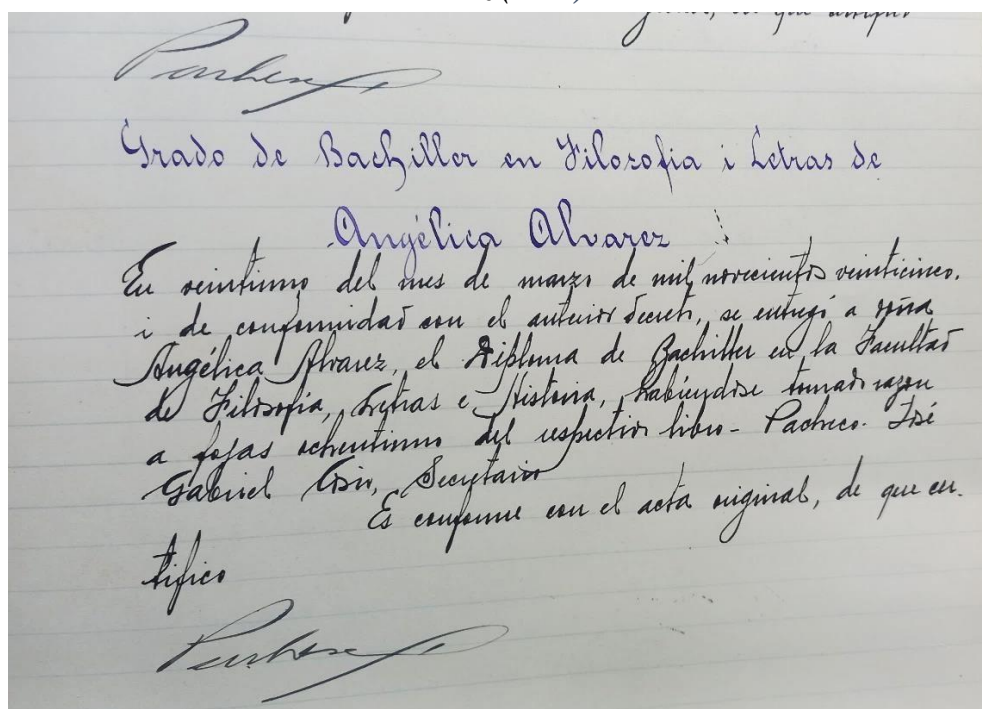 que
Pacheco
Grado de Bachiller en Filosofia i Letras de
Angélica Alvarez
En veintiuno del mes de marzo de mil novecientos veinticinco.
i de conformidad con el anterior decreto, se entregó a doña
Angélica Alvarez, el Diploma de Bachiller en la Facultad
de Filosofía, Letras e Historia, habiéndose tomado razon
a fojas ochentiuno del respectivo libro - Pacheco. José
Gabriel Cosio, Secretario
Es conforme con el acta original, de que cer.
tifico
Pacheco